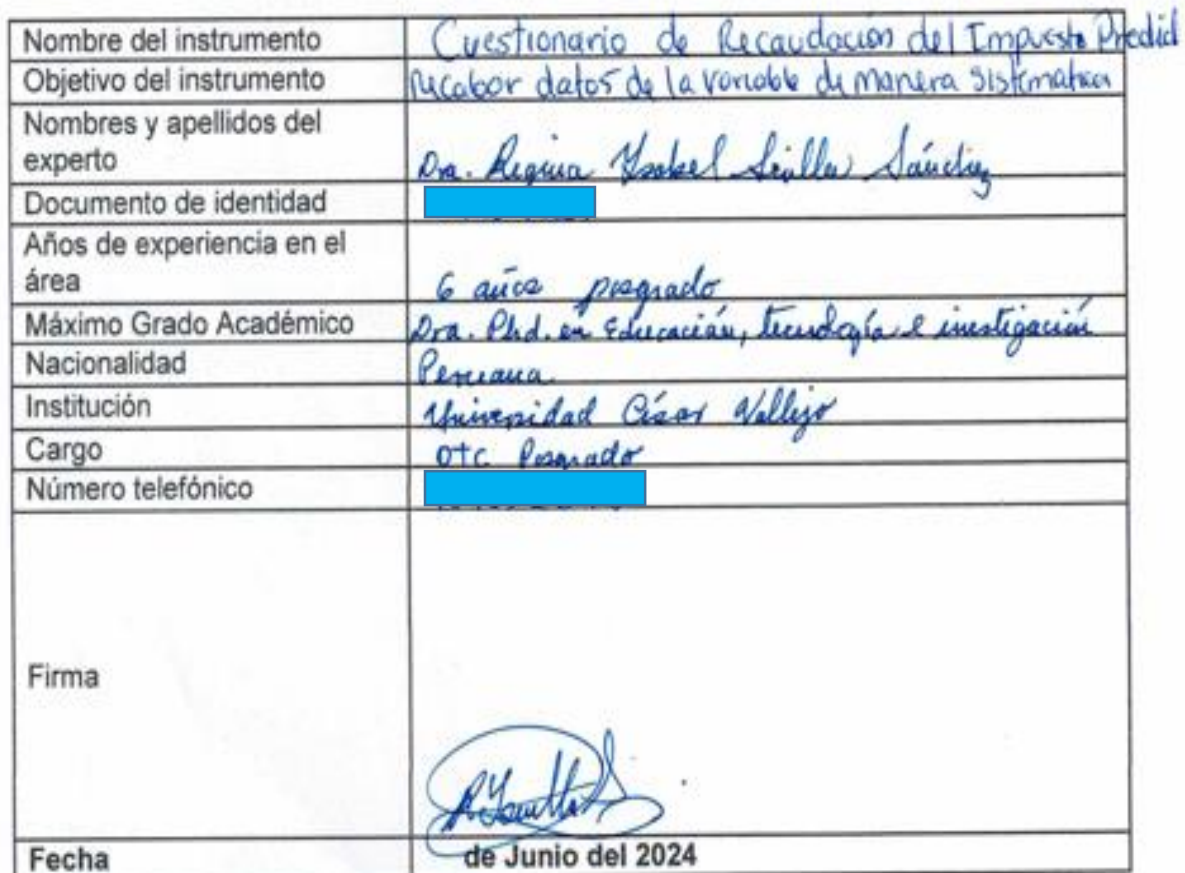 Nombre del instrumento Cuestionario de Recaudación del Impuesto Predial
Objetivo del instrumento recabar datos de la variable de manera sistematica
Nombres y apellidos del
experto Dra. Regina Ysabel Sánchez
Documento de identidad
Años de experiencia en el
área 6 años posgrado
Máximo Grado Académico Dra. Phd. en Educación, tecnología e investigación
Nacionalidad Peruana
Institución Universidad César Vallejo
Cargo DTC Posgrado
Número telefónico
Firma
Fecha de Junio del 2024